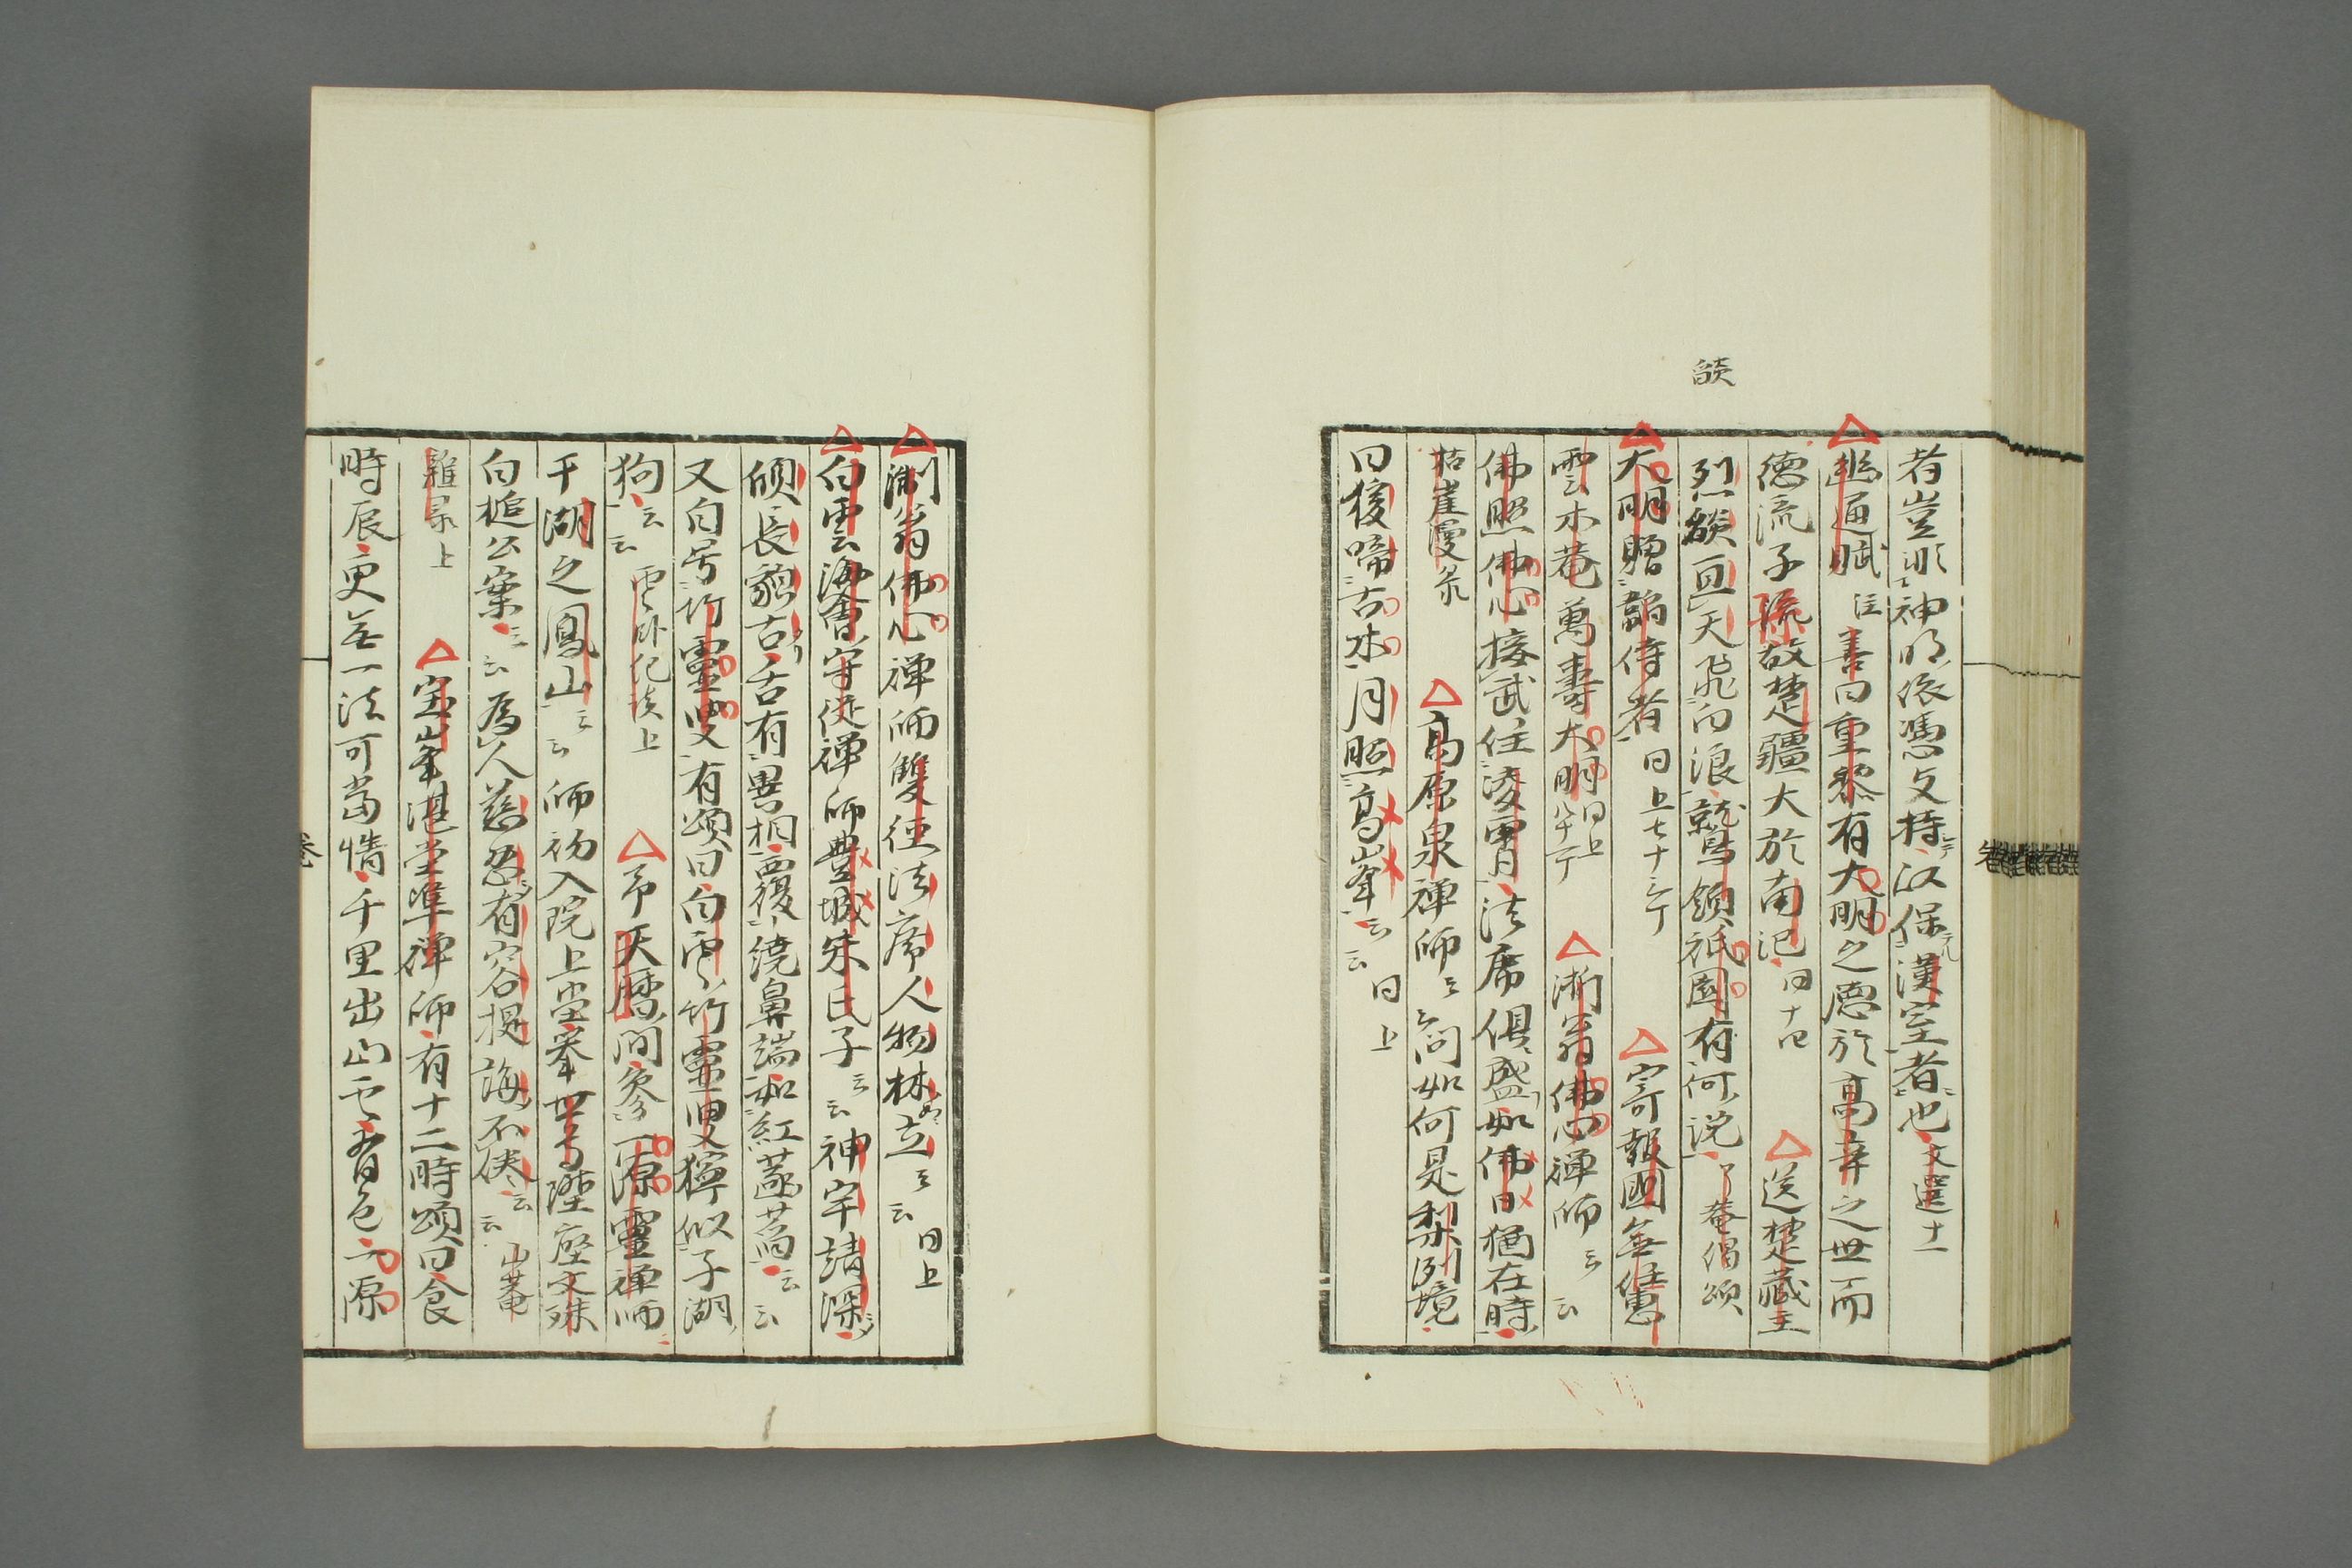 燄
者豈非神明依憑支持以保漢室者也文選十一
幽通賦 注善曰重黎有大明之德於高辛之世而
德流子孫故楚疆大於南 同十四 送楚藏主
烈燄亘天飛白浪就鳥鎖祇園有何說 了菴偈頌
大明贈韶侍者 同上七十六丁 寄報國無住惠
雲木菴萬壽大明同上八十丁 淅翁佛心禪師云云
佛照佛心接武住凌霄法席俱盛如佛日猶在時
枯崖漫录 高原泉禪師云云問如何是梨洲境
曰猿啼古木月照高峯云云 同上
淛翁佛心禪師雙徑法席人物林立云云 同上
白雲海會守從禪師豊城朱氏子云云神宇靖深
頎長貌古舌有異相覆繞鼻端如紅蓮萏云云
又自号竹靈叟有頌曰白雲竹靈叟獰似子湖
狗云云 雲卧紀談上 帝天曆間參一源靈禪師
于湖之鳳山云云師初入院上堂擧世尊陞座文殊
白槌公案云云為人慈忍有容提誨不倦云云 山菴
雜录上 宝峯湛堂準禪師有十二時頌曰食
時辰更無一法可當情千里出山云有色一源
卷